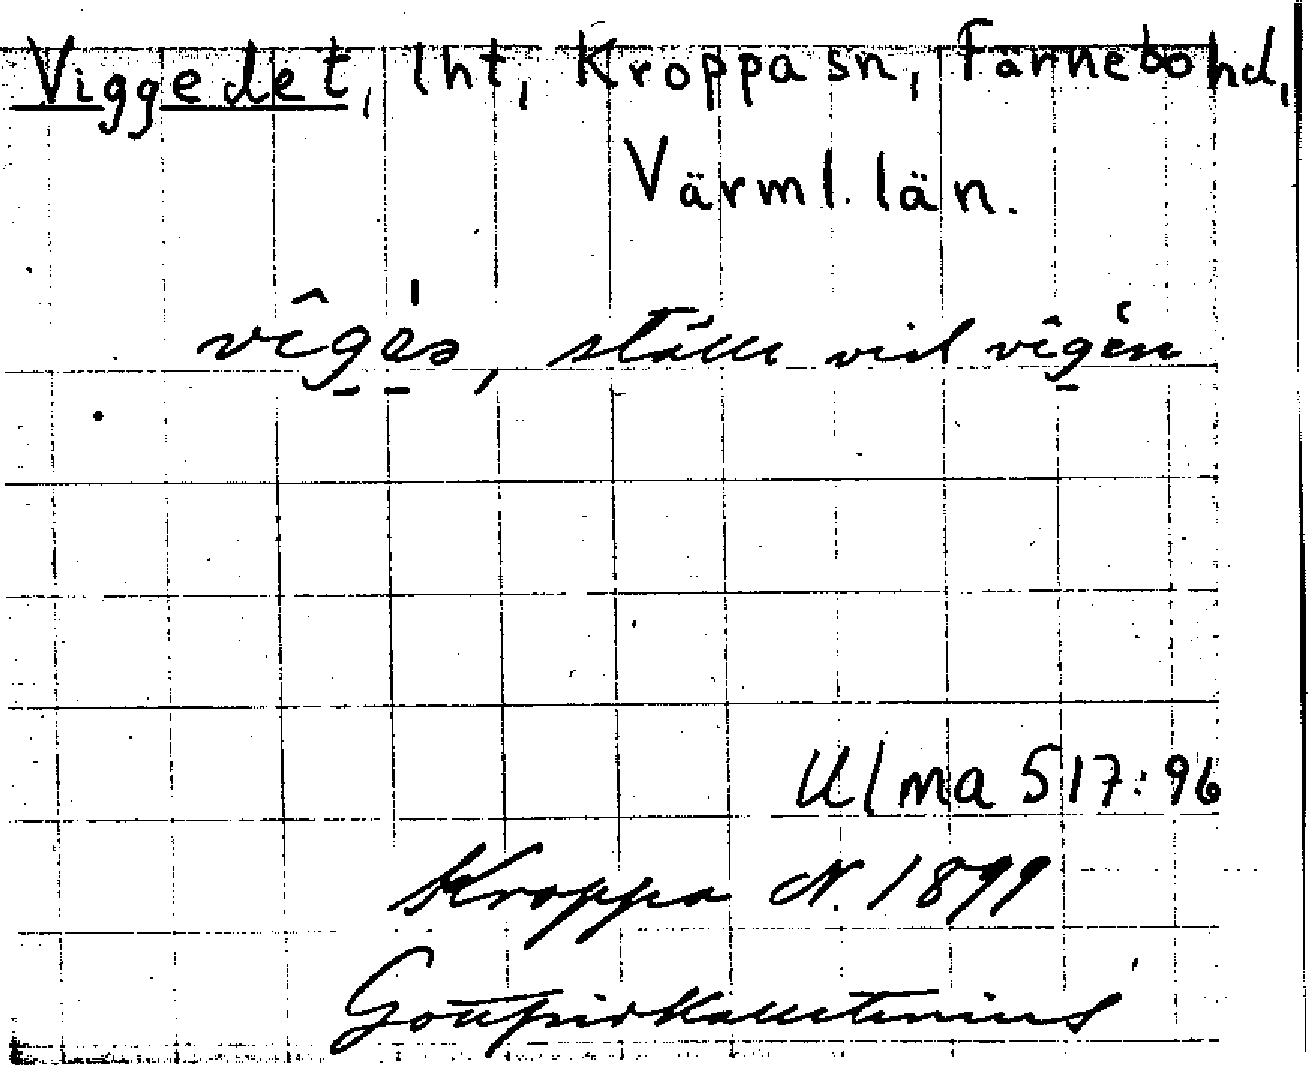 Viggedet, lht, Kroppa sn, Färnebo hd,
Värml. län.
vîgès, ställe vid vîgèn
Ulma 517:96
Kroppa N. 1899
Gottfrid Kallstenius